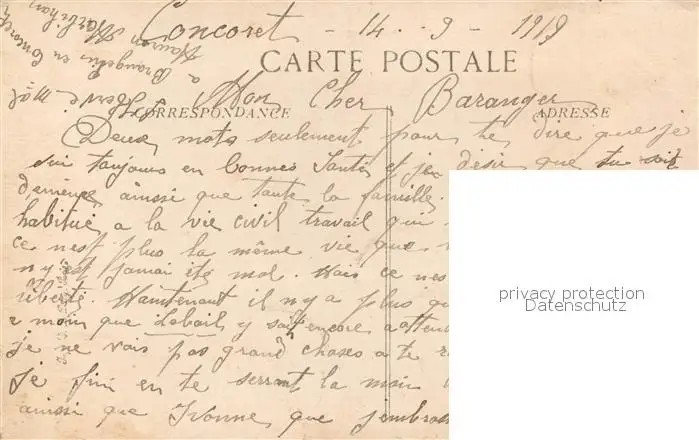 Concoret - 14 - 9 - 1919
CARTE POSTALE
CORRESPONDANCE
ADRESSE
Mon Cher Baranger
Deux mots seulement pour te dire que je
sui toujours en bonnes Santé et je désir que tu soit
de même ainssi que toute la famille.
habitué a la vie civil travail qui
ce n'est plus la même vie que
n'y est jamai été mol. Mais ce nes
liberté. Maintenant il n'y a plus qu
moin que Lebail, y soit encore a atten
je ne vois pas grand choses a te
Je fini en te serrant la main
ainssi que Yvonne, que j'embras
a Brangelin en Concoret
Mauron Morbihan
privacy protection
Datenschutz